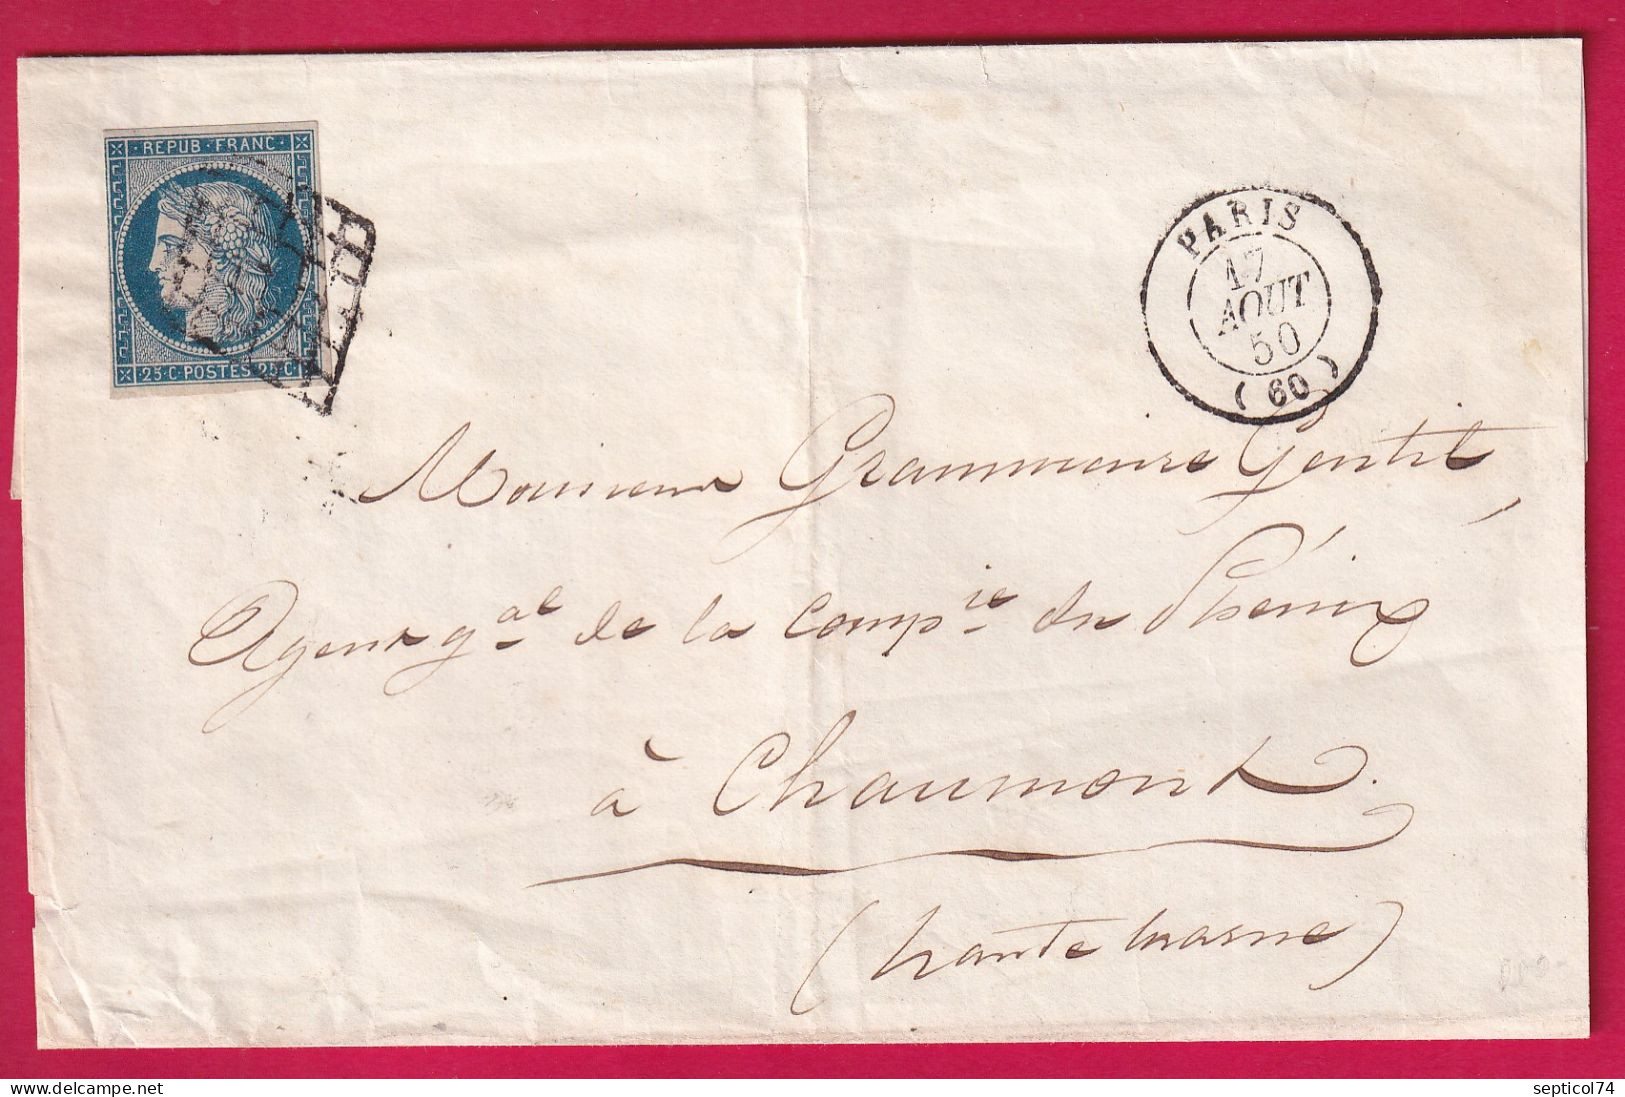 REPUB · FRANC ·
· 25 · C · POSTES · 25 · C ·
PARIS
17
AOUT
50
(60)
Monsieur Grammeuse Gentil,
Agent gal de la Compie du Phénix
à Chaumont.
(haute marne)
septicol74